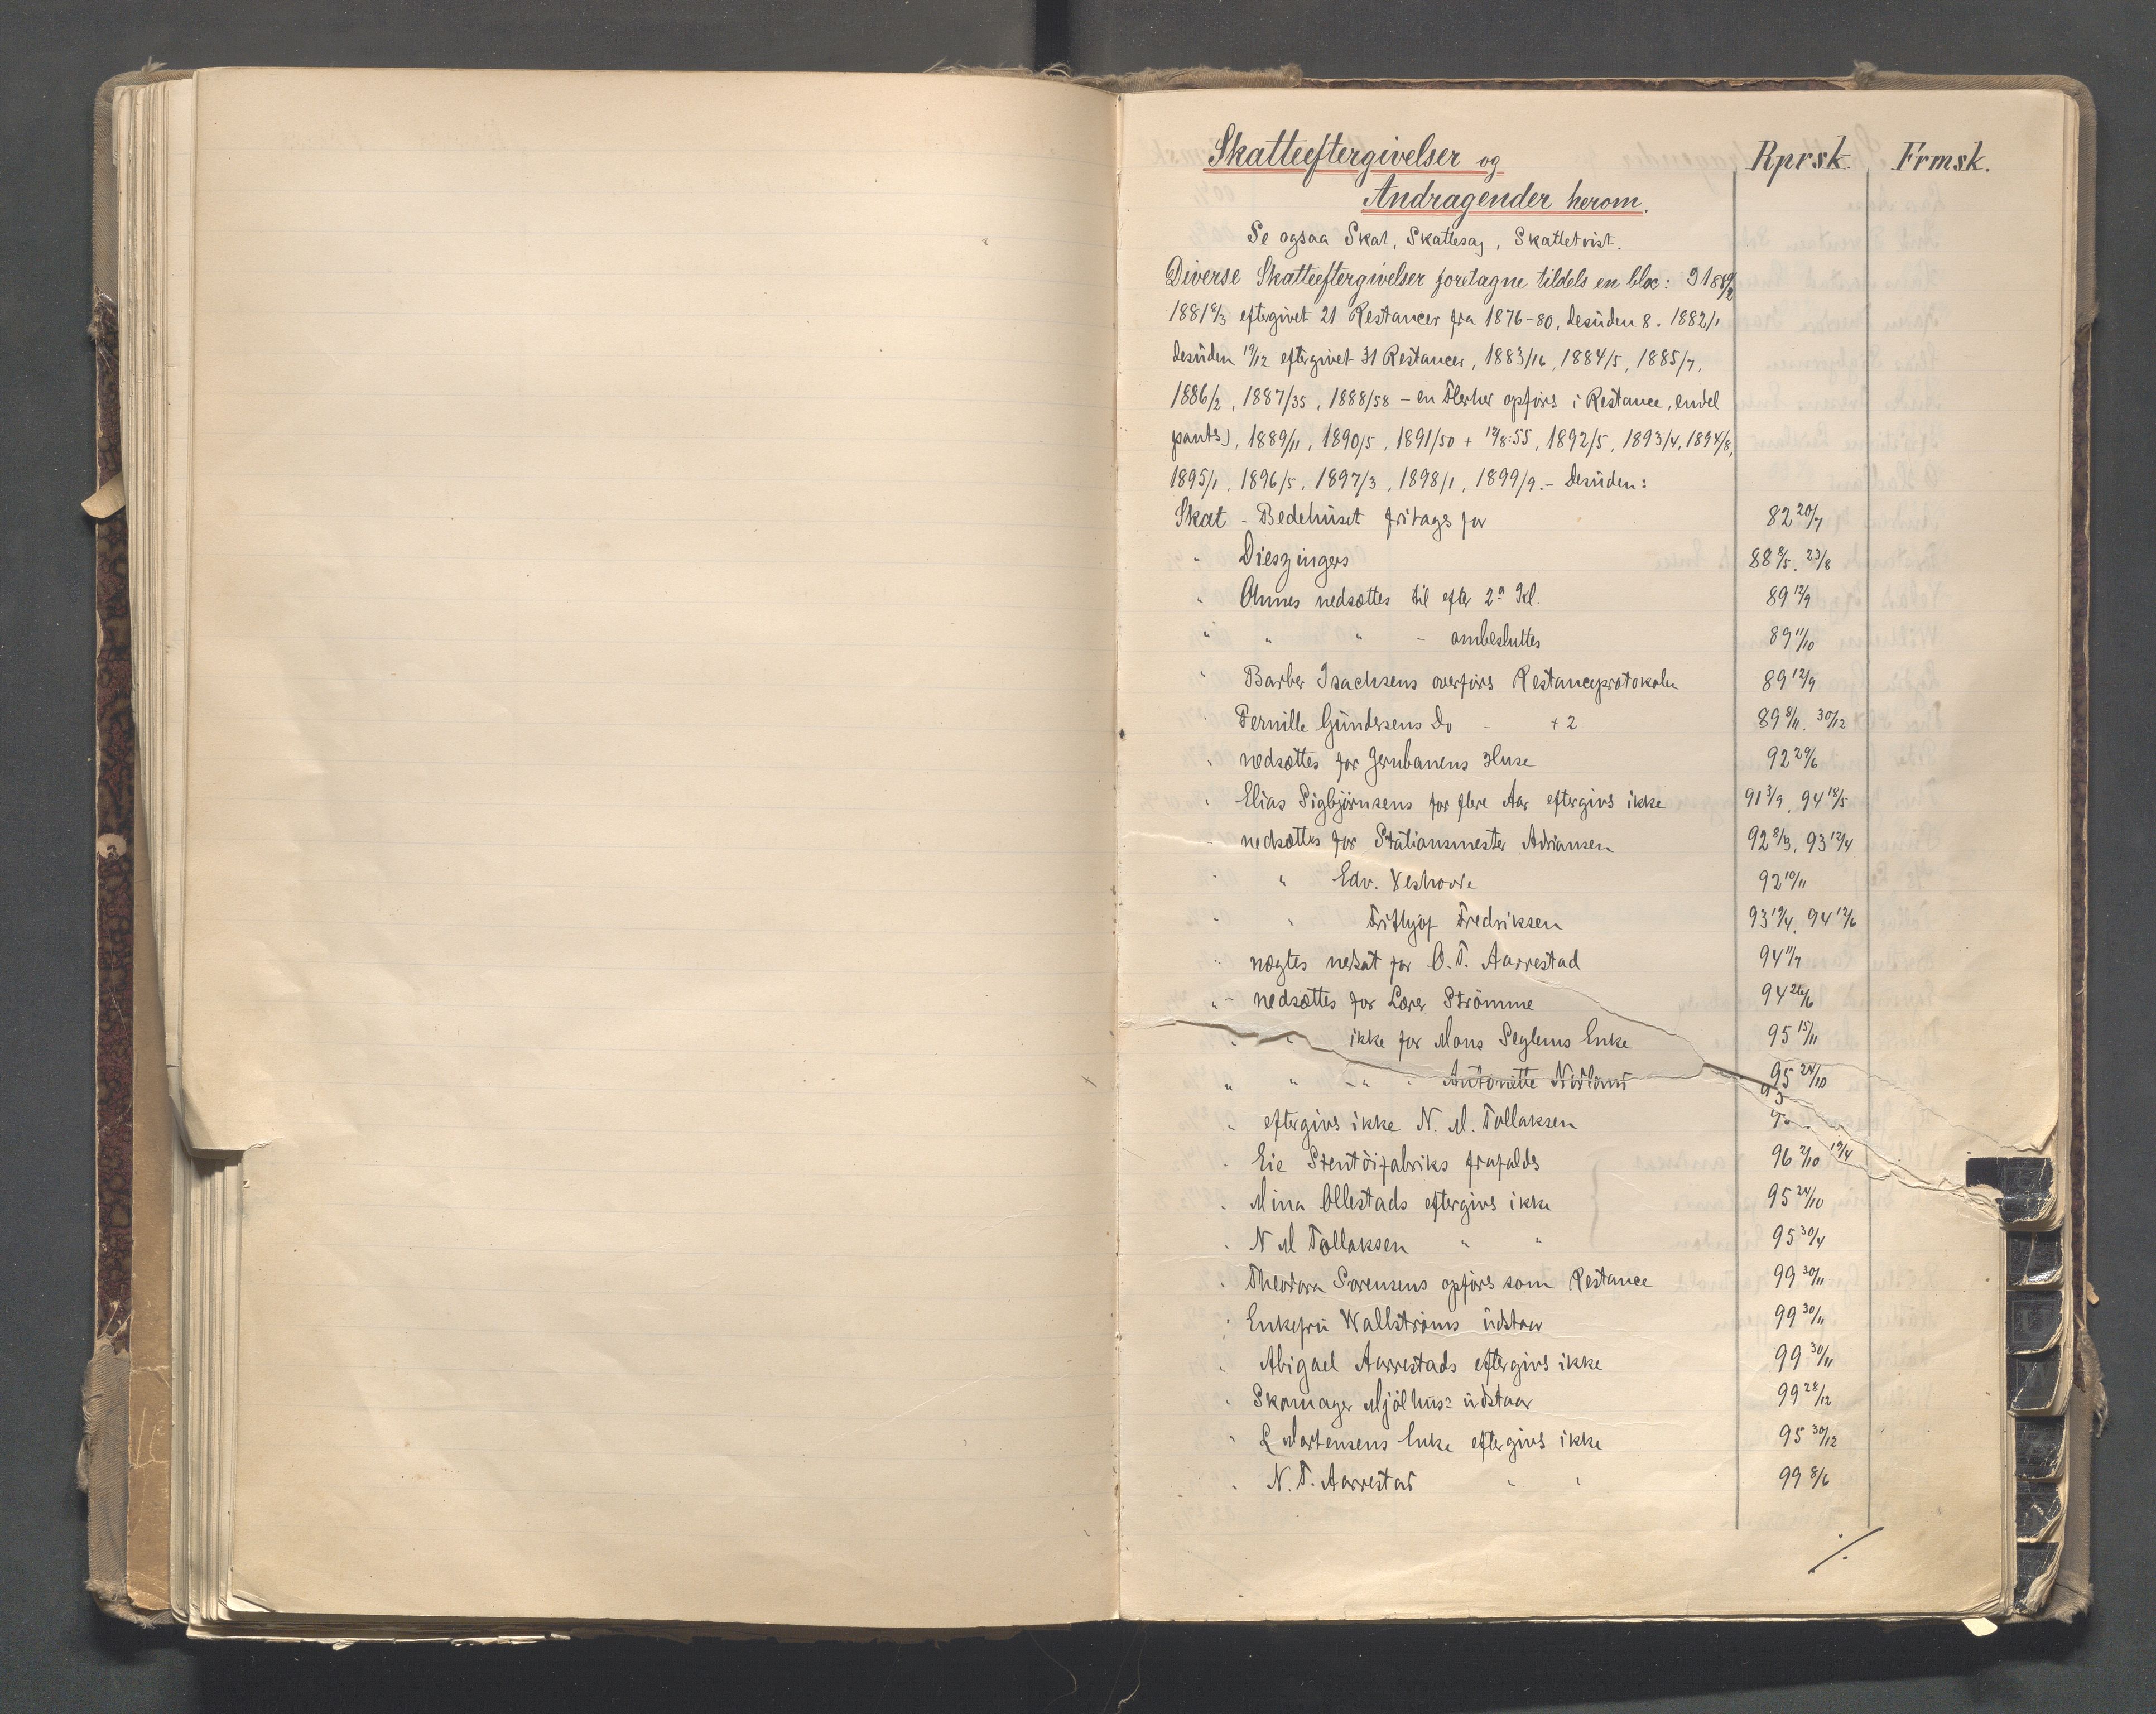 Skatteeftergivelser og Rprsk. Frmsk.
Andragender herom.
Se ogsaa Skat, Skattesag, Skattetvist.
Diverse Skatteeftergivelser foretagne tildels en bloc:
1881 8/3 eftergivet 21 Restancer fra 1876-80, desüden 8. 1882/1
desüden 19/12 eftergivet 31 Restancer, 1883/16, 1884/5, 1885/7,
1886/2, 1887/35, 1888/58 - en Flerhed opförs i Restance, endel
pants), 1889/11, 1890/5, 1891/50 + 12/8:55, 1892/5, 1893/4, 1894/8,
1895/1, 1896/5, 1897/3, 1898/1, 1899/9.- Desüden:
Skat - Bedehüset fritages for 82 20/7
- Dieszingers 88 8/5. 23/8
" nedsættes til efter 2n Kl. 89 12/9
" " " - ombesluttes 89 11/10
" Barber Isachsens overförs Restanceprotokolen 89 12/9
" Pernille Gündersens Do - + 2 89 8/11. 30/12
" nedsættes for Jernbanens Huse 92 29/6
" Elias Sigbjörnsens for flere Aar eftergivs ikke 91 3/9, 94 18/5
" nedsættes for Stationsmester Adriansen 92 8/3, 93 12/4
" " Edv. Veshovde 92 10/11
" " Frithjof Fredriksen 93 19/4, 94 12/6
" nægtes nedsat for O. T. Aarrestad 94 11/7
" - nedsættes for Lærer Strömme 94 26/6
" " ikke for Mons Seglems Enke 95 15/11
" " " " Antonette Nidlünd 95 24/10
" eftergivs ikke N. M. Tollaksen
" Eie Stentöifabriks frafalds 96 2/10 19/4
" Mina Ollestads eftergivs ikke 95 24/10
" N M Tollaksen " " 95 30/4
" Theodora Sorensens opförs som Restance 99 30/11
" Enkefrü Wallströms üdstaar 99 30/11
" Abigael Aarrestads eftergivs ikke 99 30/11
" Skomager Mjölhüs: üdstaar 99 28/12
" L Mortensens Enke eftergivs ikke 95 30/12
" N. T. Aarrestad " " 99 8/6
./.